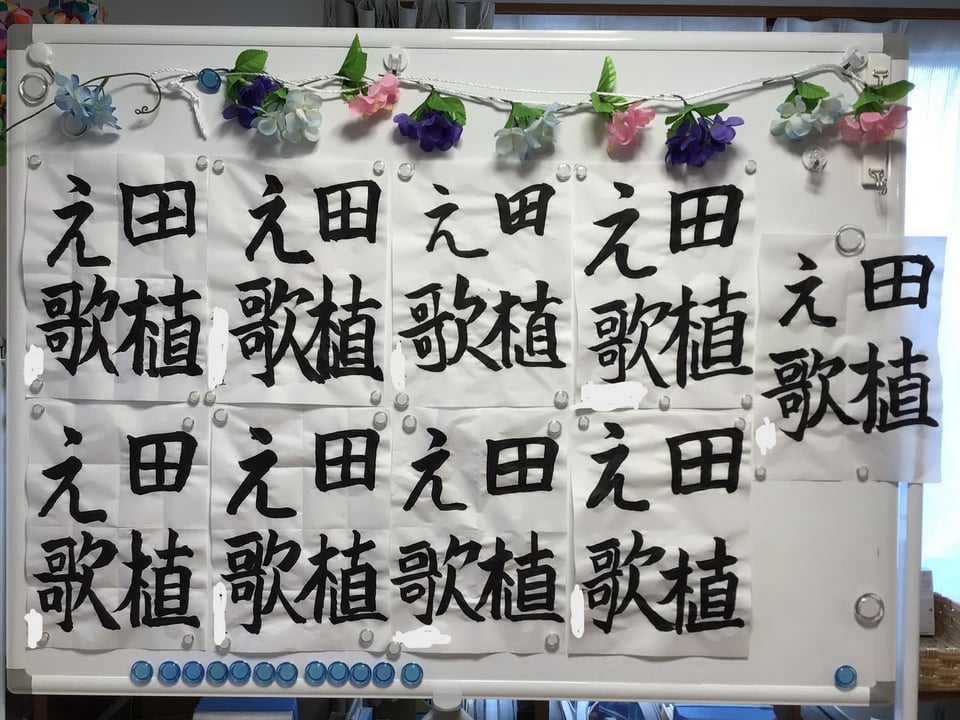 田植
え歌
田植
え歌
田植
え歌
田植
え歌
田植
え歌
田植
え歌
田植
え歌
田植
え歌
田植
え歌